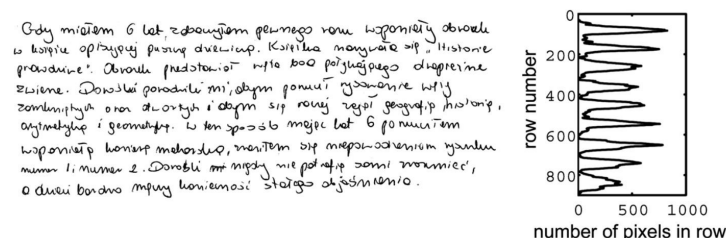 Gdy miałem 6 lat, zobaczyłem pewnego razu wspaniały obrazek
w książce opisującej puszczę dziewiczą. Książka nazywała się „Historie
prawdziwe". Obrazek przedstawiał węża boa połykającego drapieżne
zwierzę. Dorośli poradzili mi, abym porzucił rysowanie węży
zamkniętych oraz otwartych i abym się raczej zajął geografią, historią,
arytmetyką i geometrią. W ten sposób mając lat 6 porzuciłem
wspaniałą karierę malarską, zraziłem się niepowodzeniem rysunku
numer 1 i numer 2. Dorośli nigdy nie potrafią sami zrozumieć,
a dzieci bardzo męczy konieczność stałego objaśniania.
0
200
400
600
800
row number
0 500 1000
number of pixels in row